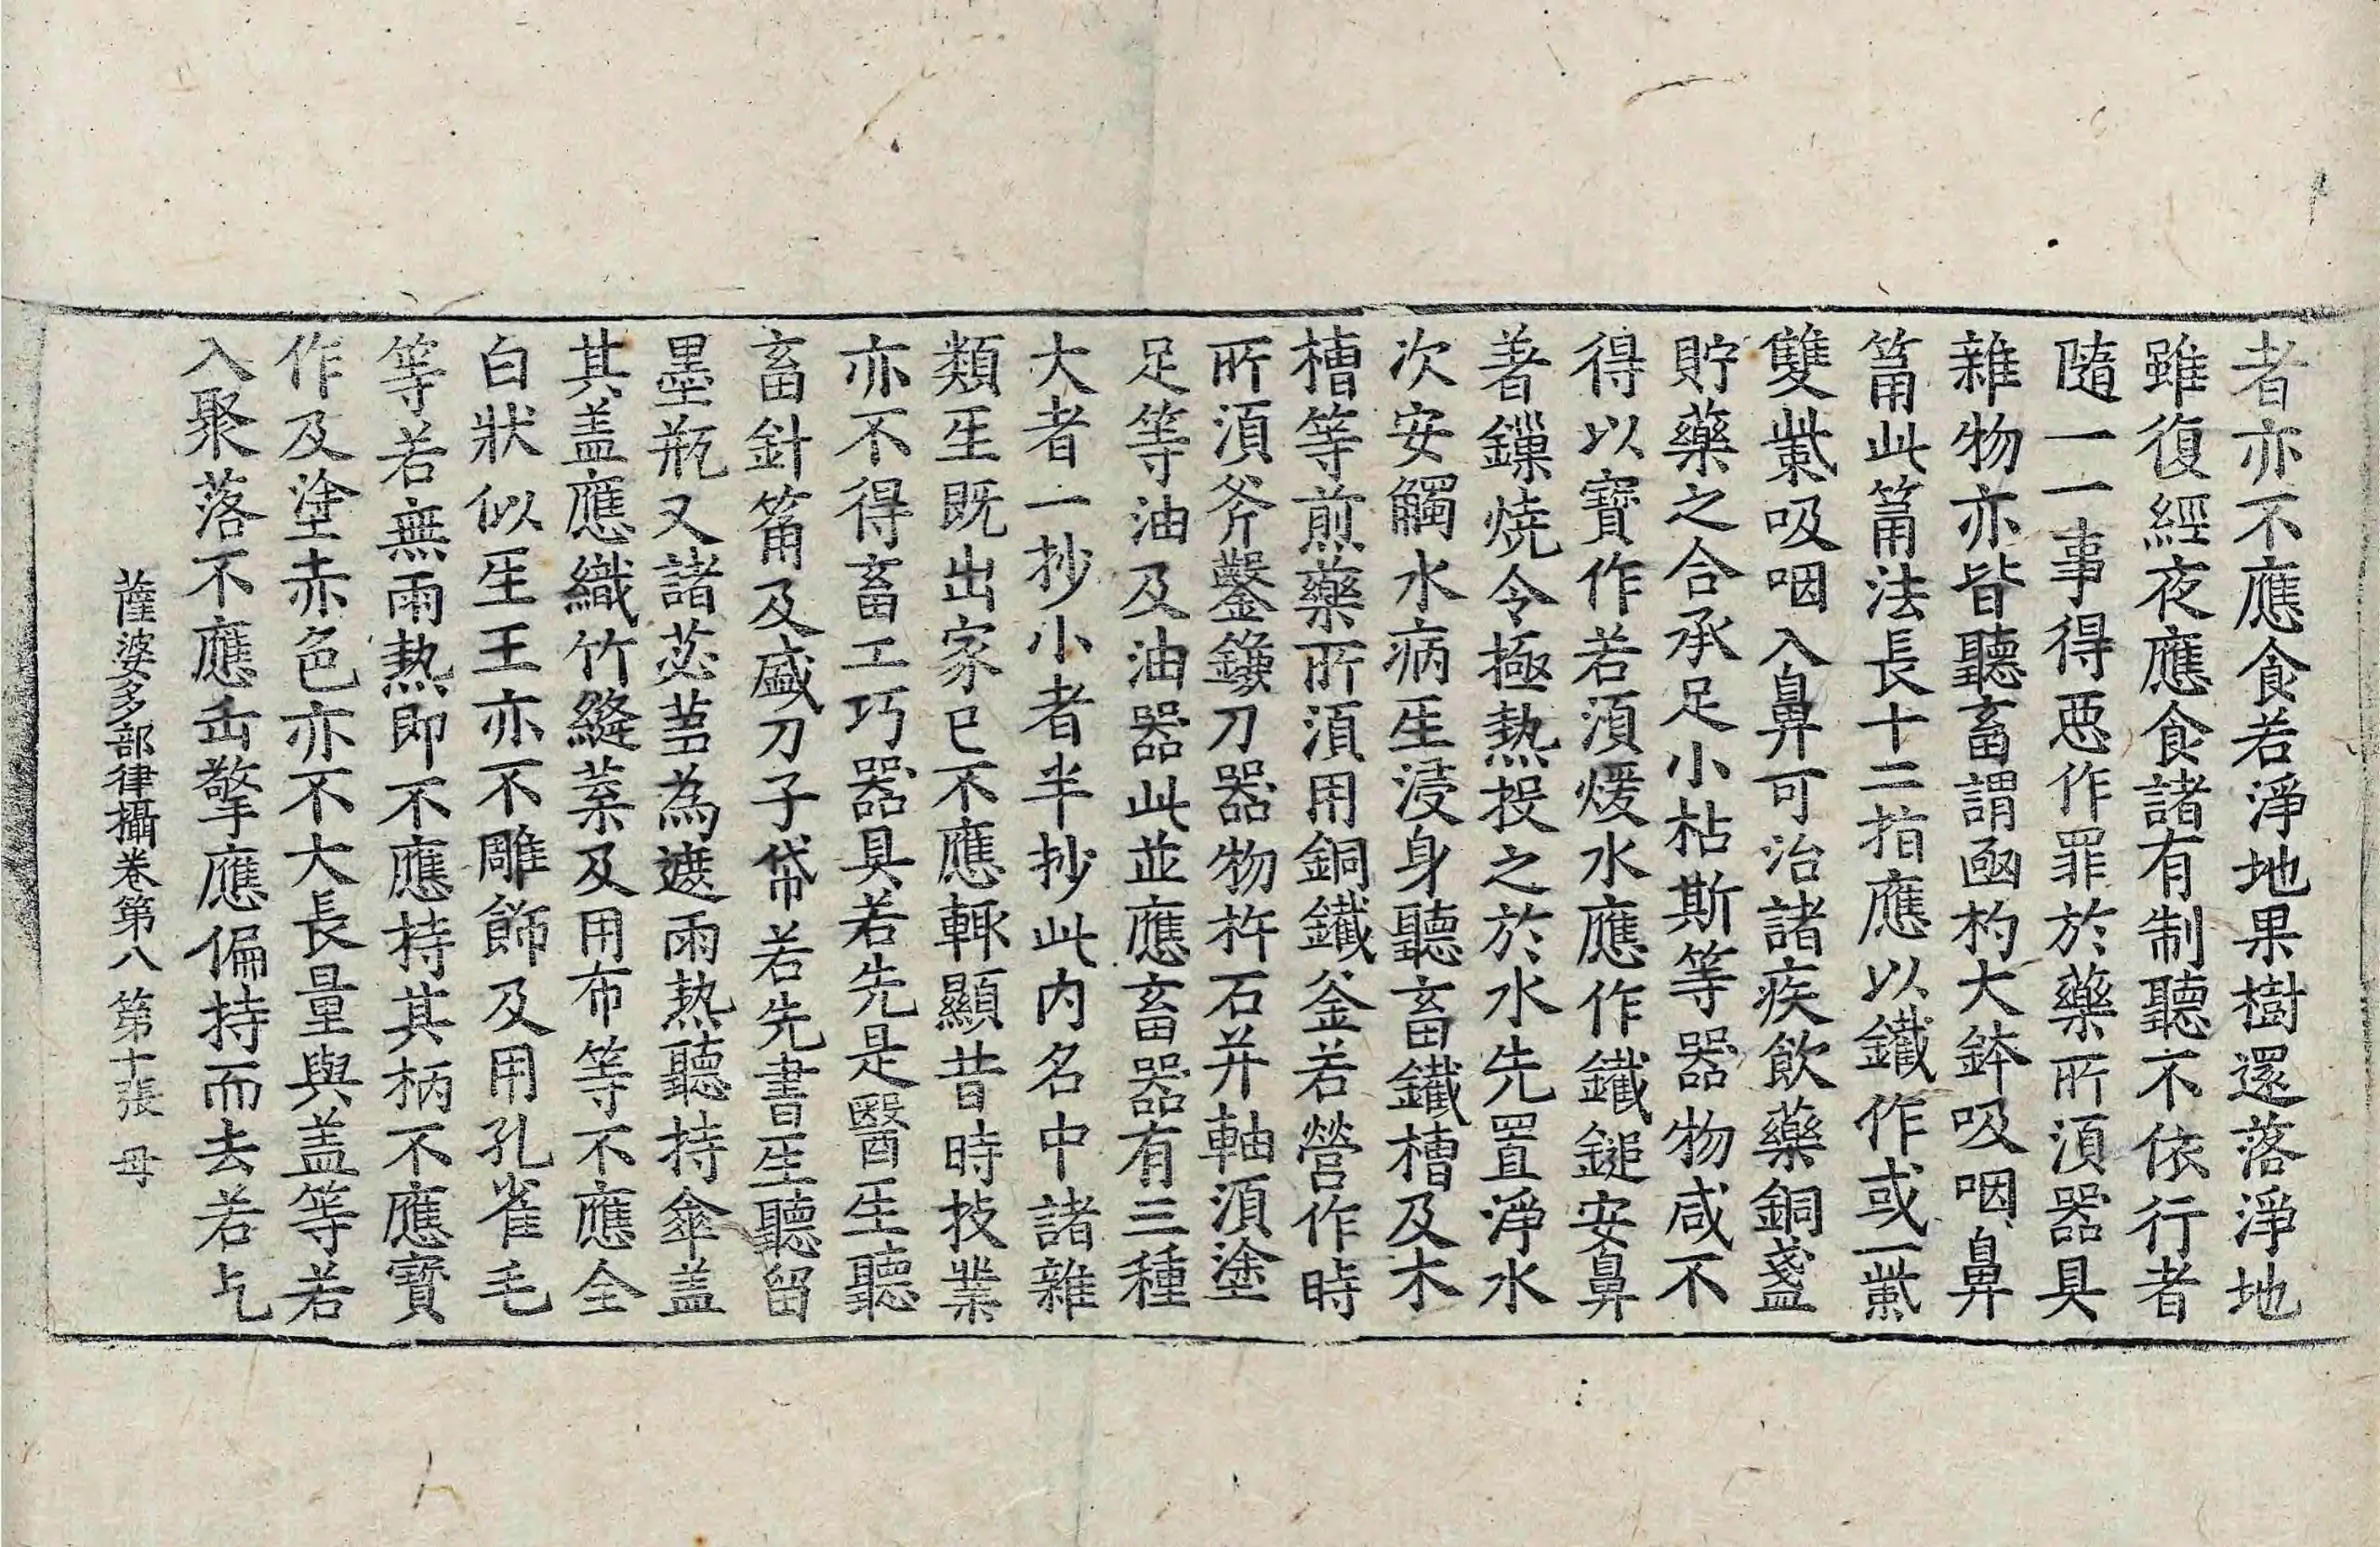 者亦不應食若淨地果樹還落淨地
雖復經夜應食諸有制聽不依行者
隨一一事得惡作罪於藥所湏器具
雜物亦皆聽畜謂凾杓大鉢吸咽鼻
筩此筩法長十二指應以鐵作或一㭰
雙㭰吸咽入鼻可治諸疾飲藥銅盞
貯藥之合承足小枯斯等器物咸不
得以寶作若湏煖水應作鐵鎚安鼻
著鏁燒令極熱投之於水先置淨水
次安觸水病生浸身聽畜鐵槽及木
槽等煎藥所湏用銅鐵釜若營作時
所湏斧鑿鑱刀器物杵石并軸湏塗
足等油及油器此並應畜器有三種
大者一抄小者半抄此内名中諸雜
類生既出家已不應輙顯昔時技業
亦不得畜工巧器具若先是醫生聽
畜針筩及盛刀子帒若先書生聽留
墨瓶又諸苾芻為遮雨熱聽持傘盖
其盖應織竹縫葉及用布等不應全
白狀似生王亦不雕飾及用孔雀毛
等若無雨熱即不應持其柄不應寶
作及塗赤色亦不大長量與盖等若
入聚落不應缶擎應偏持而去若乞
薩婆多部律攝卷第八 第十張 母